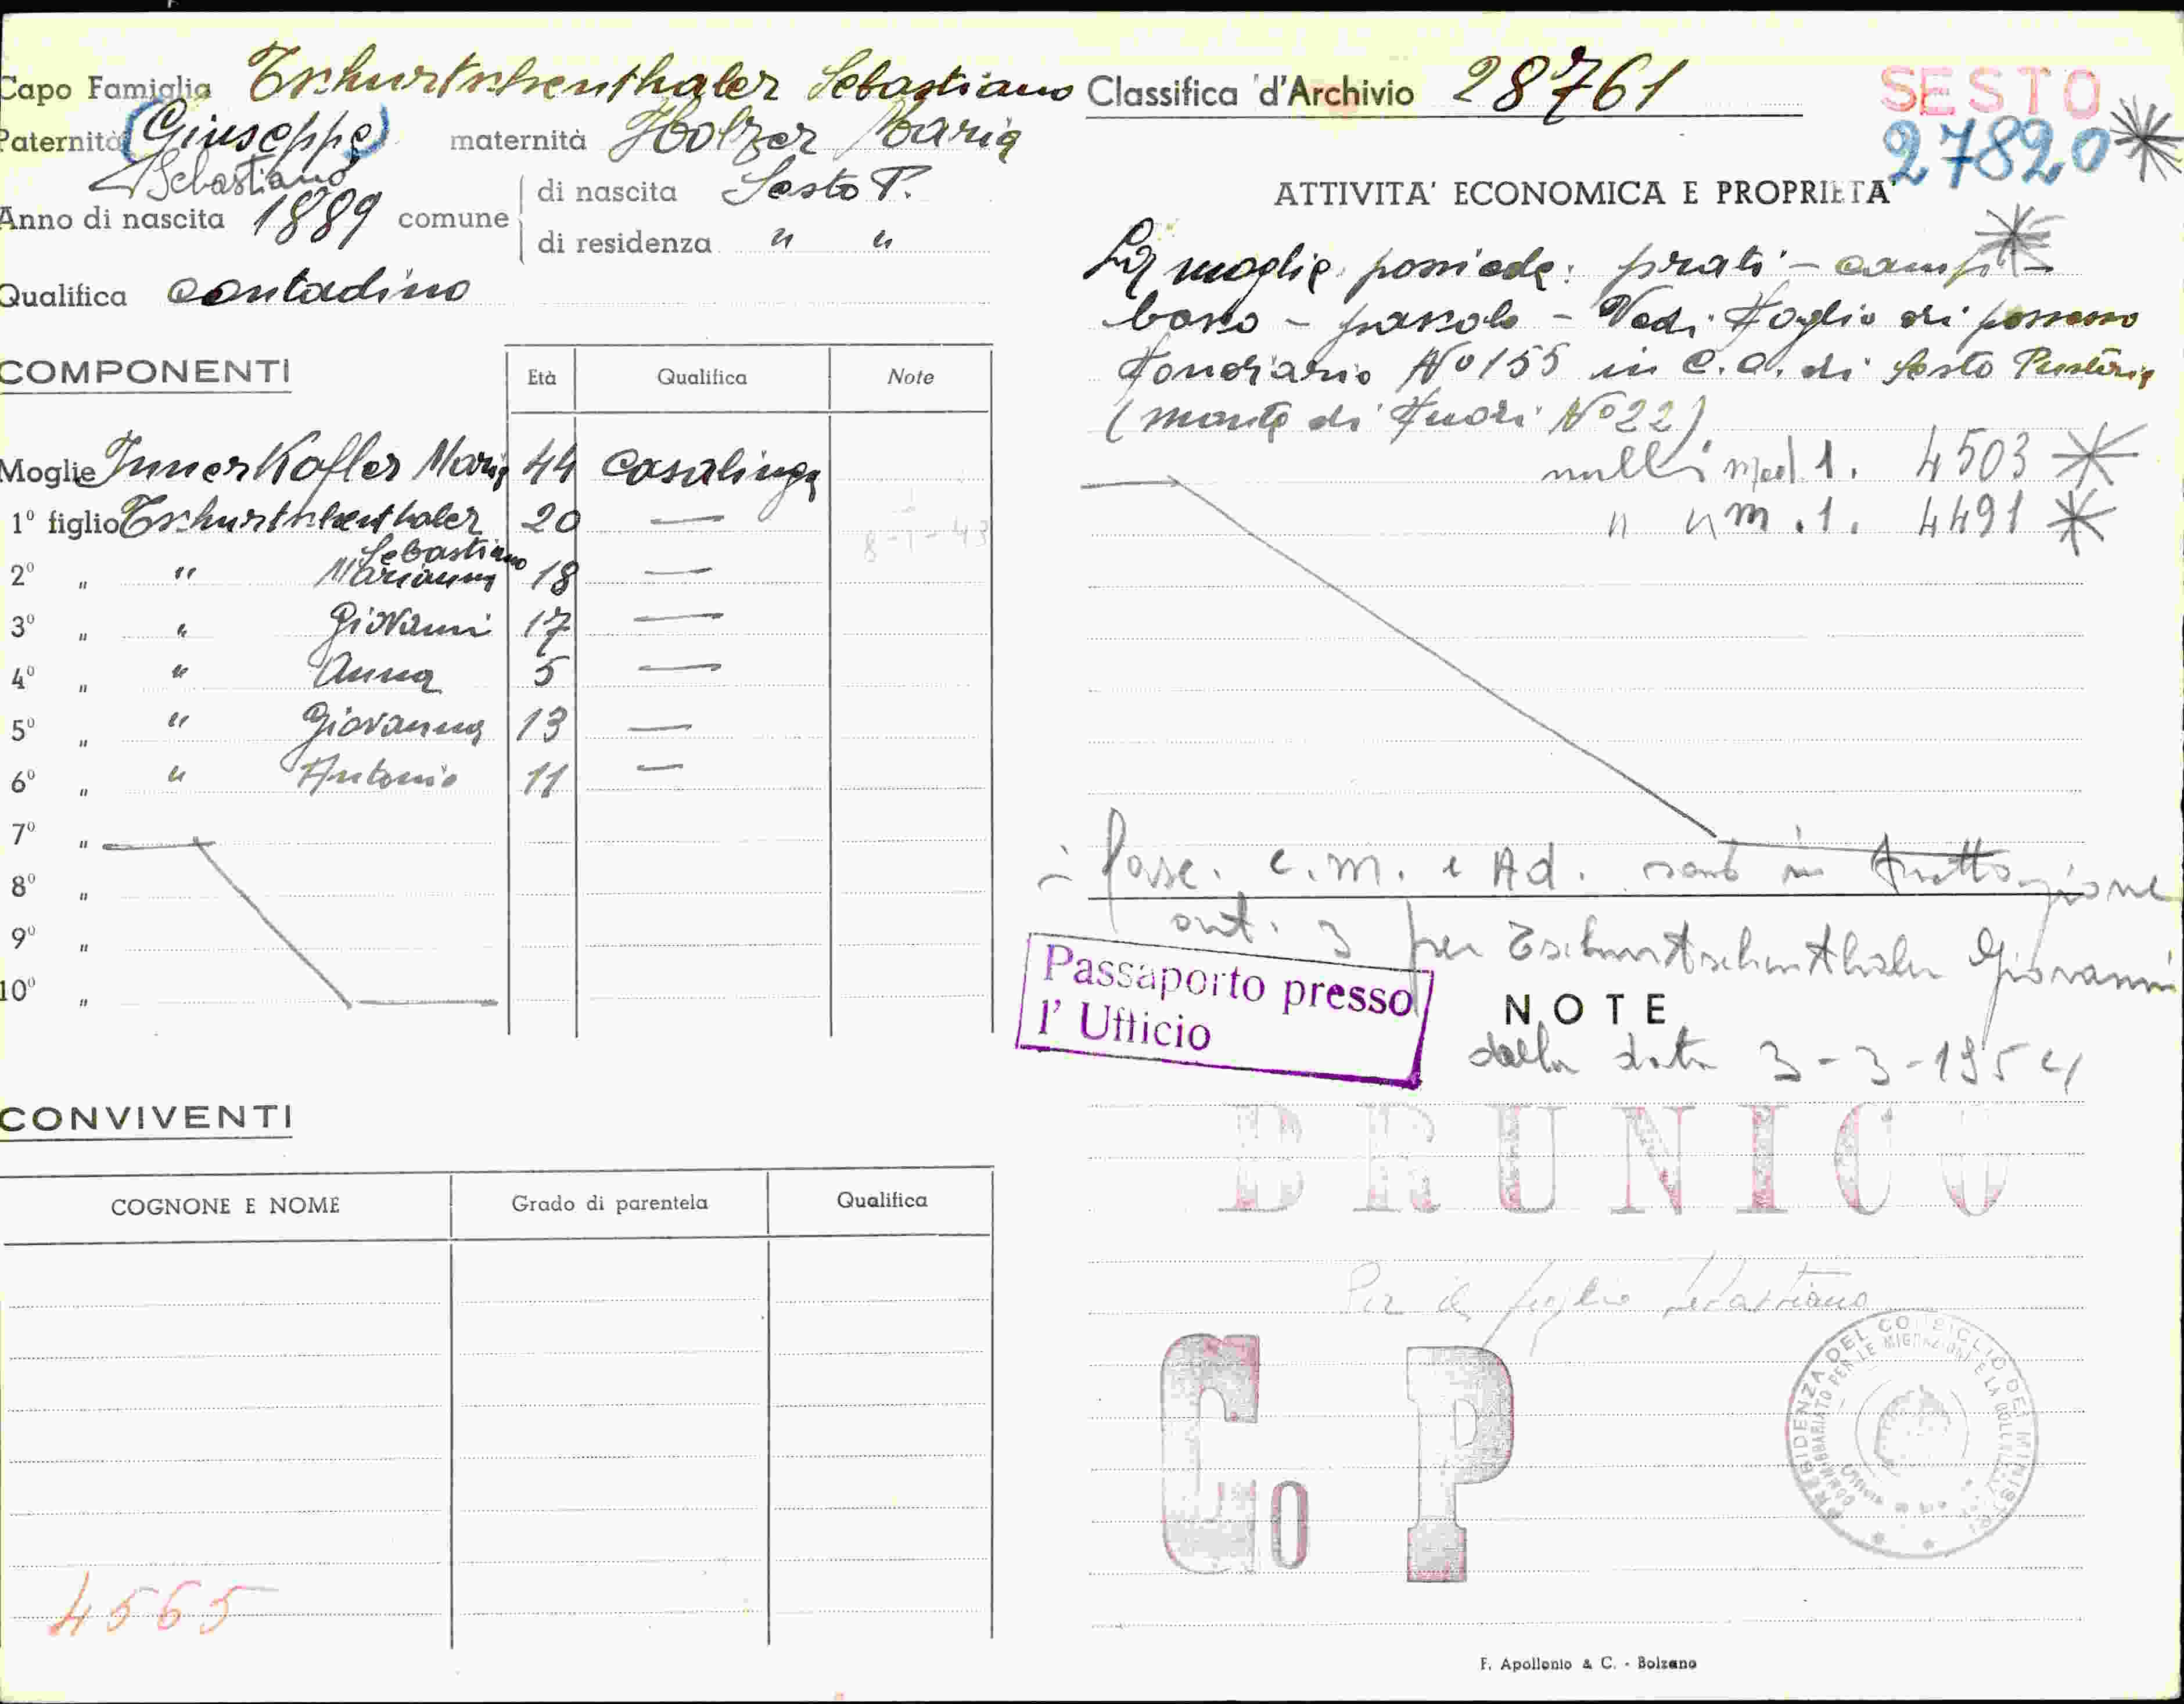 Capo Famiglia Tschurtschenthaler Sebastiano
Paternità (Giuseppe) maternità Holzer Maria
Sebastiano
Anno di nascita 1889 comune di nascita Sesto P.
di residenza " "
Qualifica contadino
COMPONENTI Età Qualifica Note
Moglie Innerkofler Maria 44 casalinga
1º figlio Tschurtschenthaler 20 —
Sebastiano
8-1-43
2º " " Marianna 18 —
3º " " Giovanni 17 —
4º " " Anna 5 —
5º " " Giovanna 13 —
6º " " Antonio 11 —
7º "
8º "
9º "
10º "
CONVIVENTI
COGNONE E NOME Grado di parentela Qualifica
4565
Classifica d'Archivio 28761
SESTO
27820
ATTIVITA' ECONOMICA E PROPRIETA'
La moglie possiede: prati - campi -
bosco - pascolo - Vedi foglio di possesso
fondiario Nº 155 in C.C. di Sesto Pusteria
(monte di fuori Nº 22)
nulli mod 1. 4503
" " m.1. 4491
- fasc. c.m. e Ad. sono in trattazione
art. 3 per Tschurtschenthaler Giovanni
Passaporto presso
l' Ufficio
NOTE
dalla data 3-3-1954
BRUNICO
Per il figlio Sebastiano
Go P
PRESIDENZA DEL CONSIGLIO DEI MINISTRI
COMMISSARIATO PER LE MIGRAZIONI E LA
F. Apollonio & C. - Bolzano